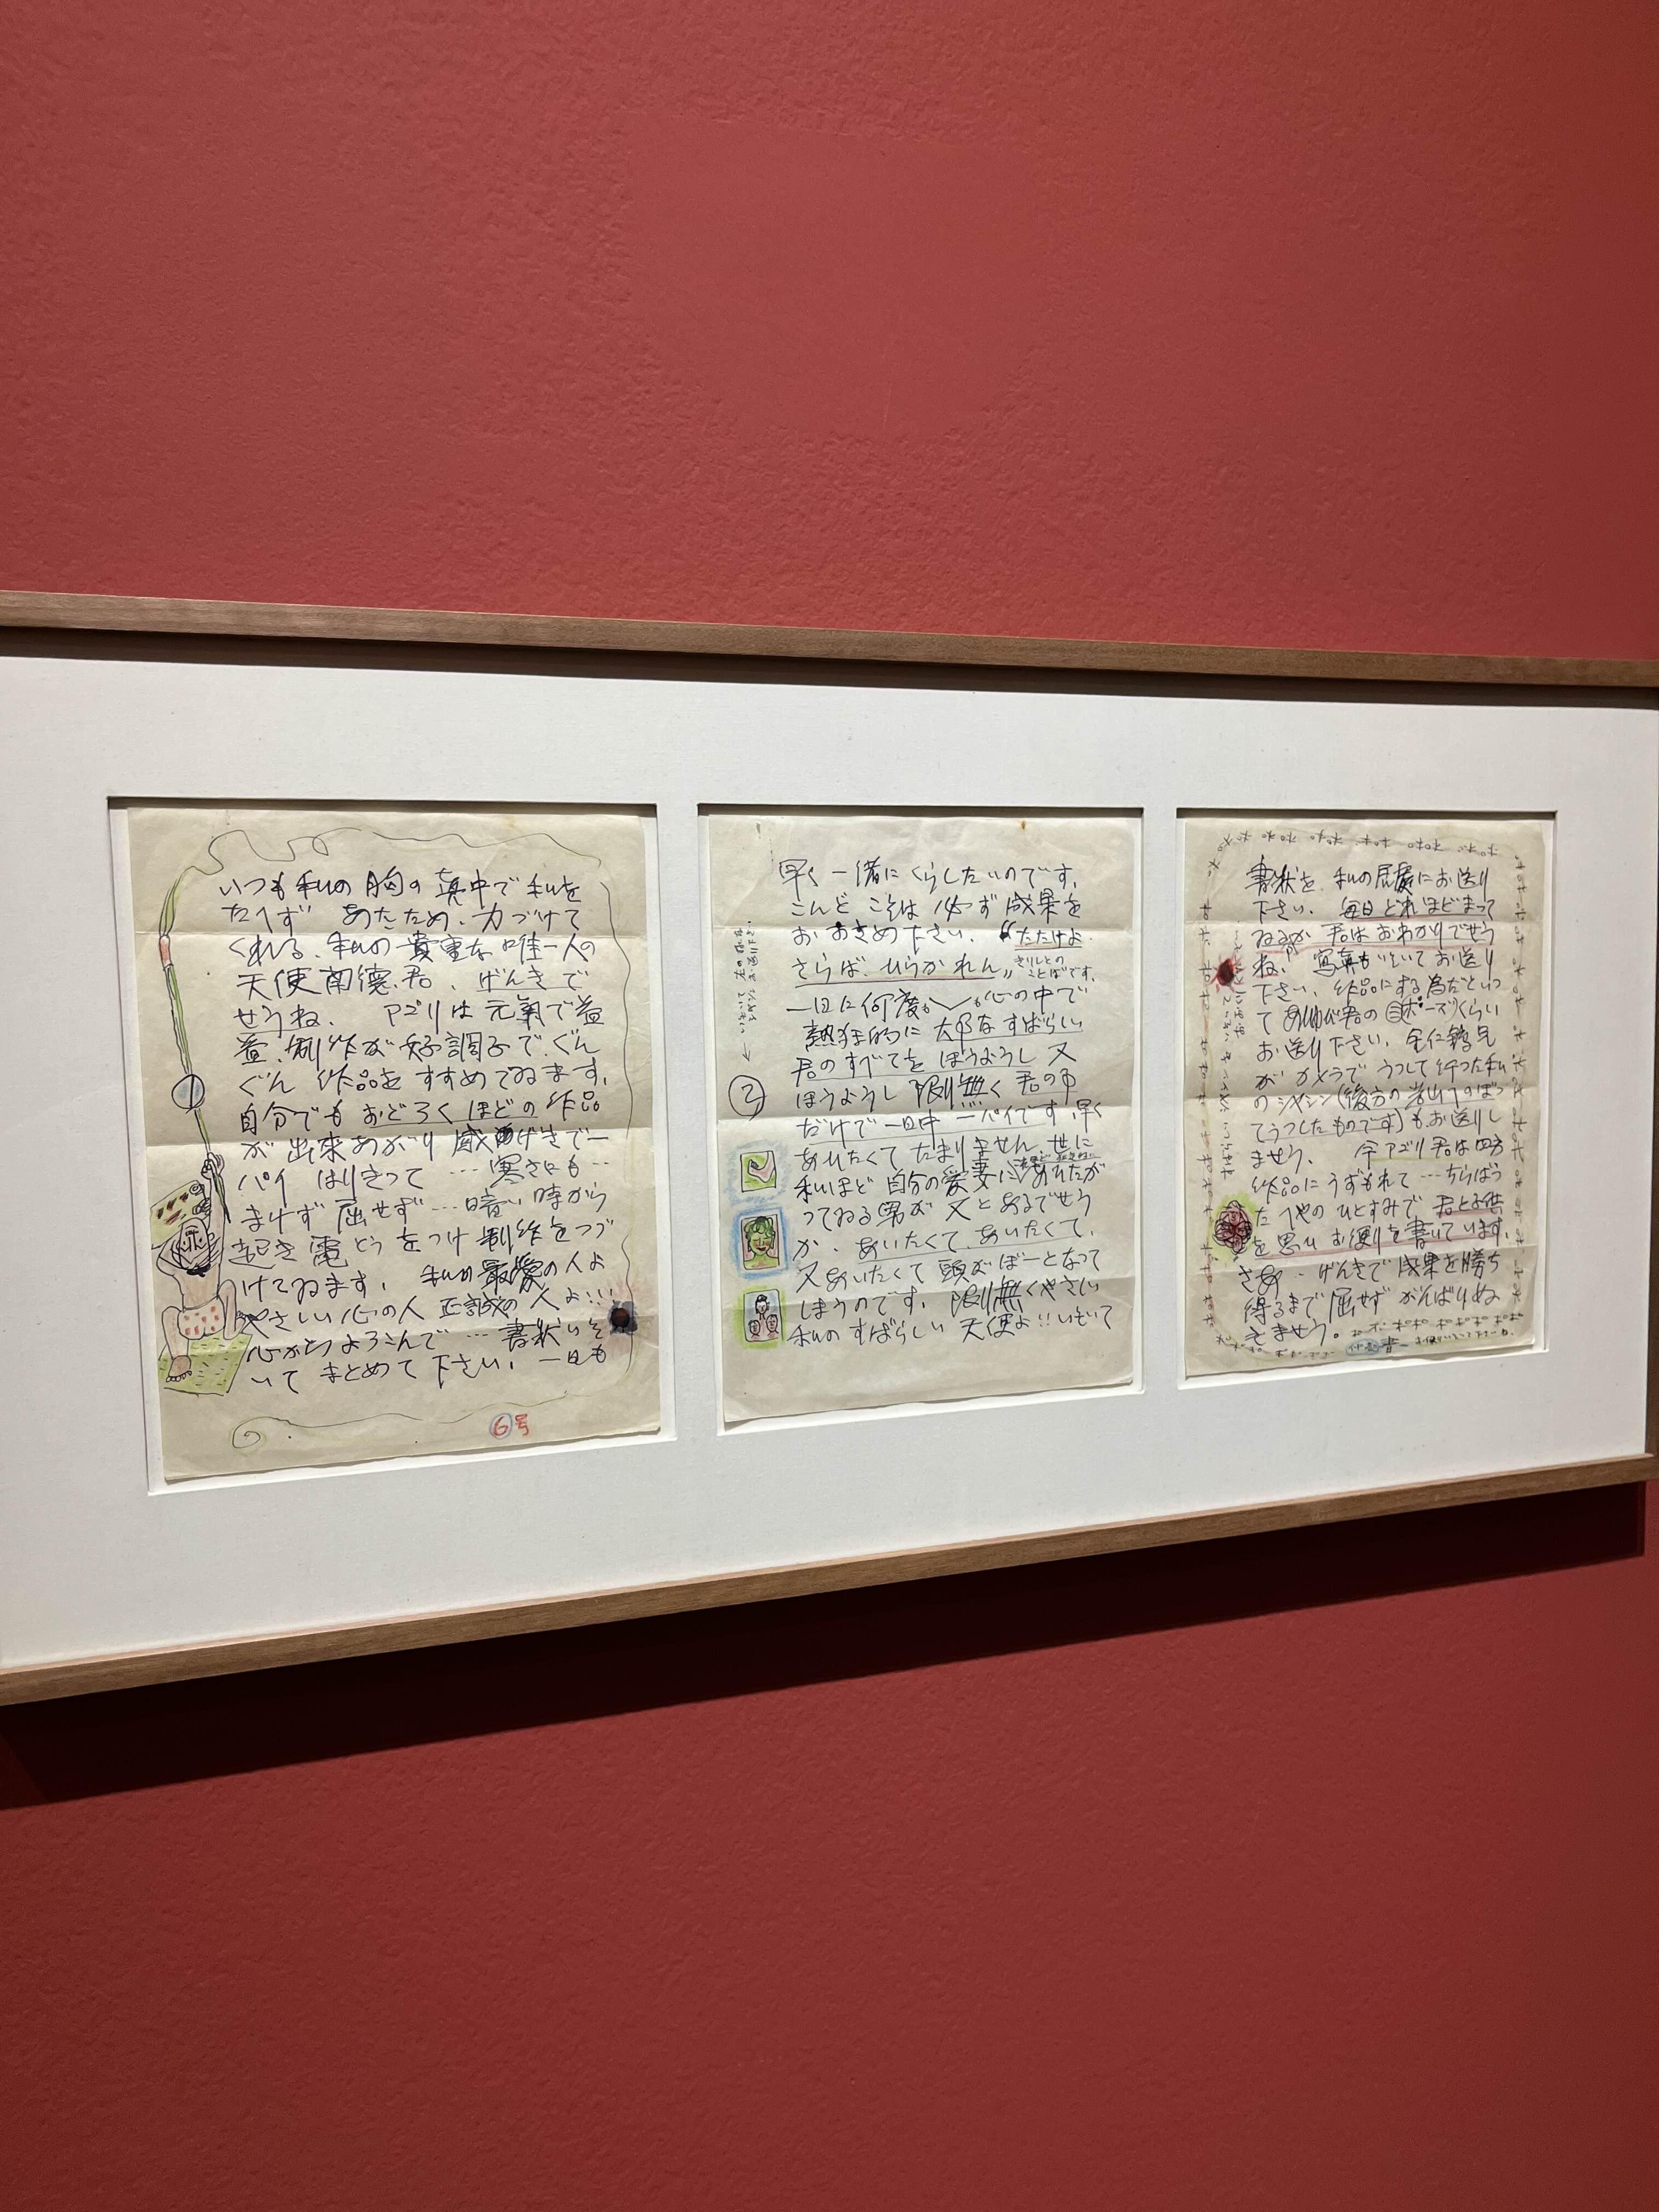 いつも私の胸の真中で私を
たへず あたため、力づけて
くれる、私の貴重な唯一人の
天使南德君、げんきで
せうね。 アゴリは元氣で益
益、制作が好調子で、ぐん
ぐん 作品をすすめてゐます。
自分でも おどろくほどの作品
が 出来あがり 感げきで一
パイ はりきって…寒さにも…
まけず 屈せず…暗い時から
起き 電とうをつけ 制作をつづ
けてゐます。 私の最愛の人よ
やさしい心の人 正誠の人よ!!!
心からよろこんで…書状いそ
いで まとめて下さい。一日も
6号
早く一緒にくらしたいのです。
こんど こそは 必ず 成果を
おおさめ下さい。“たたけよ
さらば、ひらかれん”きりしとの
ことばです。
一日に何度も〱心の中で
熱狂的に 大切なすばらしい
君のすべてを ほうようし 又
ほうようし 限り無く 君の事
だけで 一日中 一パイです。早く
あいたくて たまりません。世に
私ほど 自分の愛妻に あいたが
ってゐる男が 又とあるでせう
か。あいたくて、あいたくて、
又あいたくて 頭がぼーとなって
しまうのです。限り無くやさしい
私のすばらしい 天使よ!!いそいで
2
書状を 私の お送り
下さい。毎日どれほどまって
ゐるか 君はおわかりでせう
ね。寫真もいそいでお送り
下さい。作品にする為だといっ
て 君の ポーズくらい
お送り下さい。 兄
がカメラで うつして行った私
のシャシン(後方の 山へのぼっ
てうつしたものです)もお送りし
ませう。 今アゴリ君は四方
作品に うずもれて…ちらばっ
た へやの ひとすみで、君と子供
を思い お便りを書いています。
さあ‥げんきで 成果を勝ち
得るまで 屈せず がんばりぬ
きませう。
ポポ ポポ ポポ